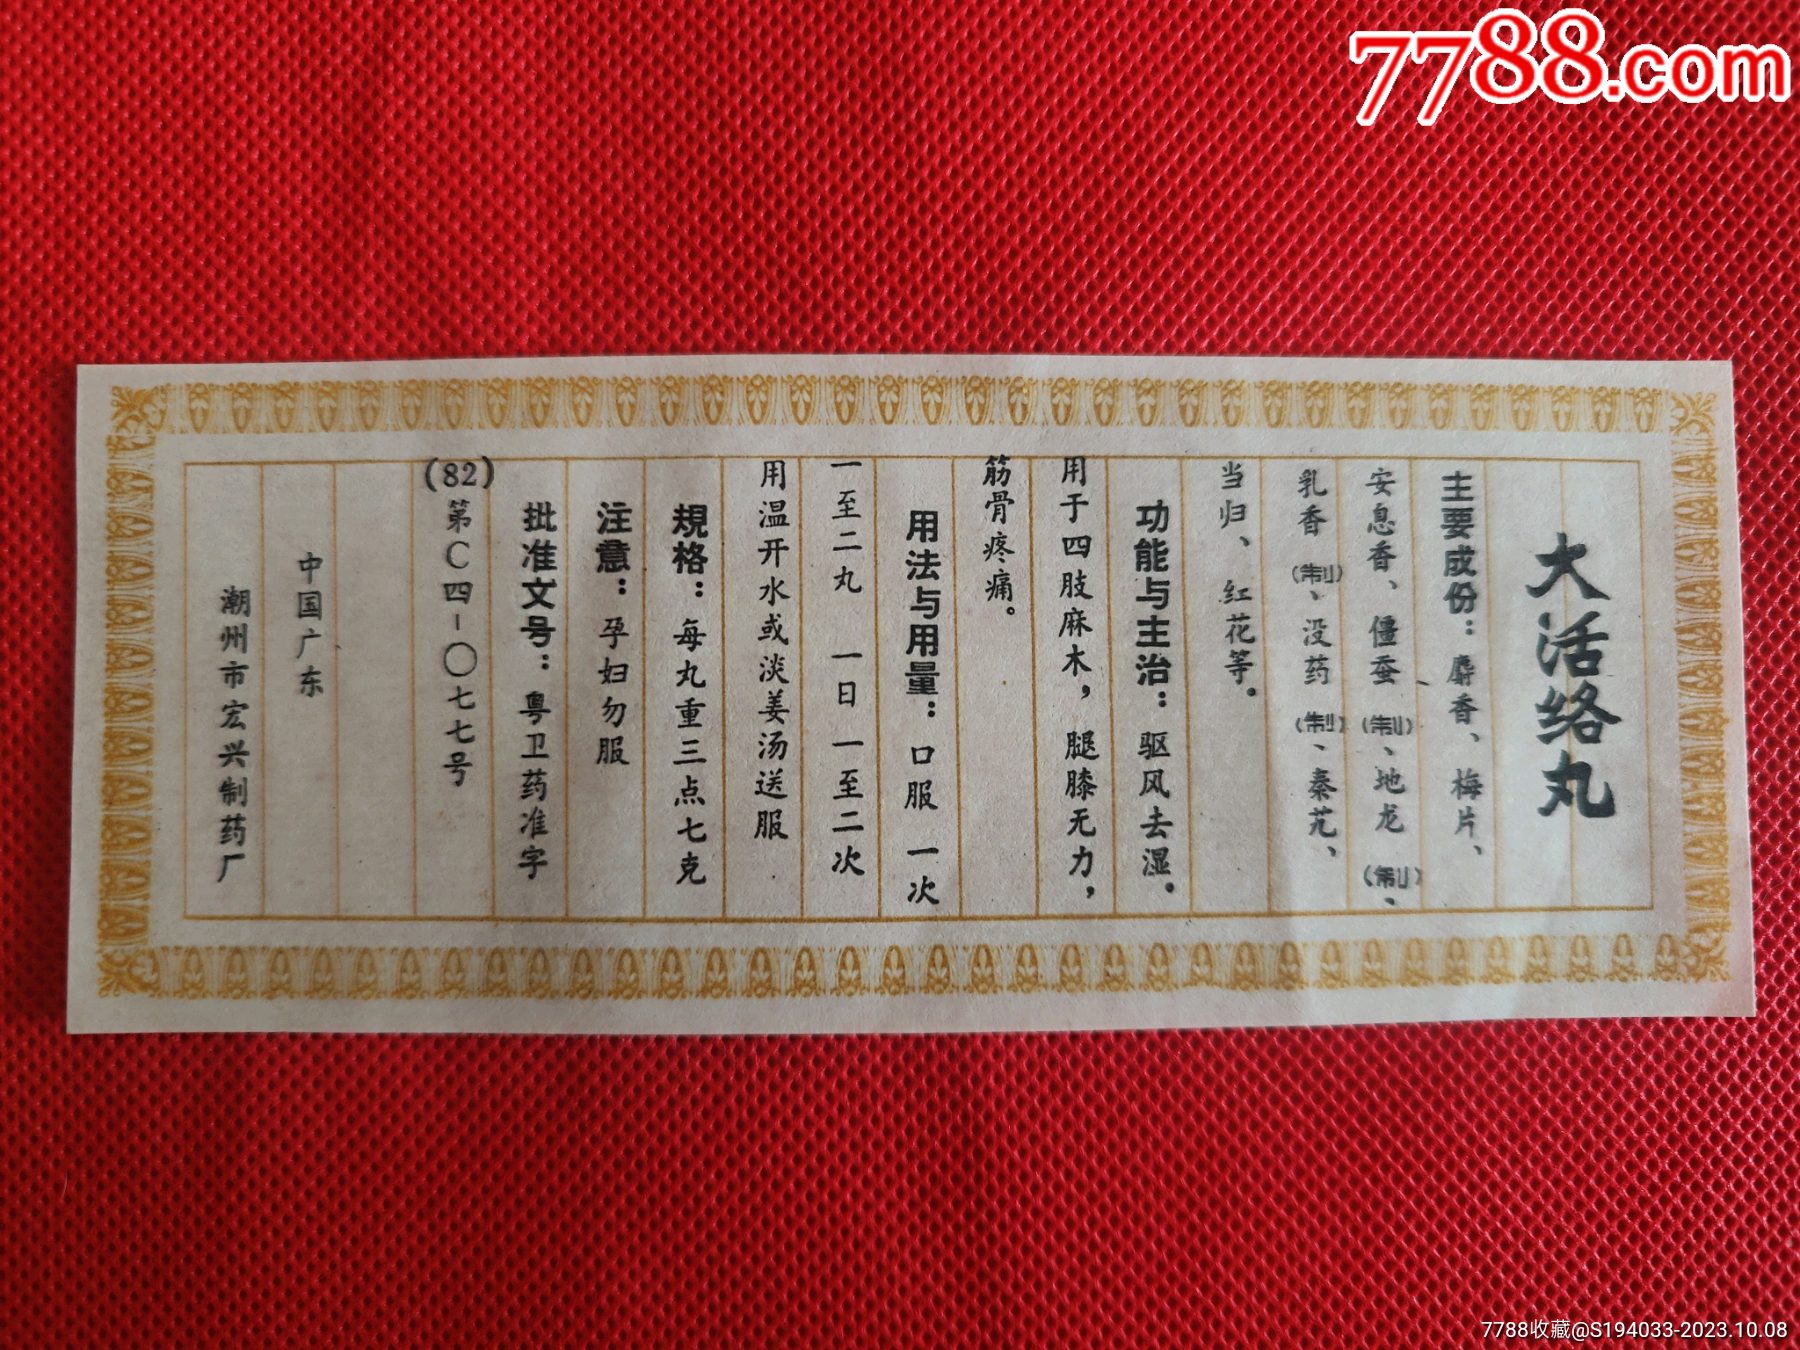 7788.com
大活络丸
主要成份：麝香、梅片、
安息香、僵蚕（制）、地龙（制）、
乳香（制）、没药（制）、秦艽、
当归、红花等。
功能与主治：驱风去湿。
用于四肢麻木，腿膝无力，
筋骨疼痛。
用法与用量：口服 一次
一至二丸 一日 一至二次
用温开水或淡姜汤送服
規格：每丸重三点七克
注意：孕妇勿服
批准文号：粤卫药准字
(82)第C四-〇七七号
中国广东
潮州市宏兴制药厂
7788收藏@S194033-2023.10.08